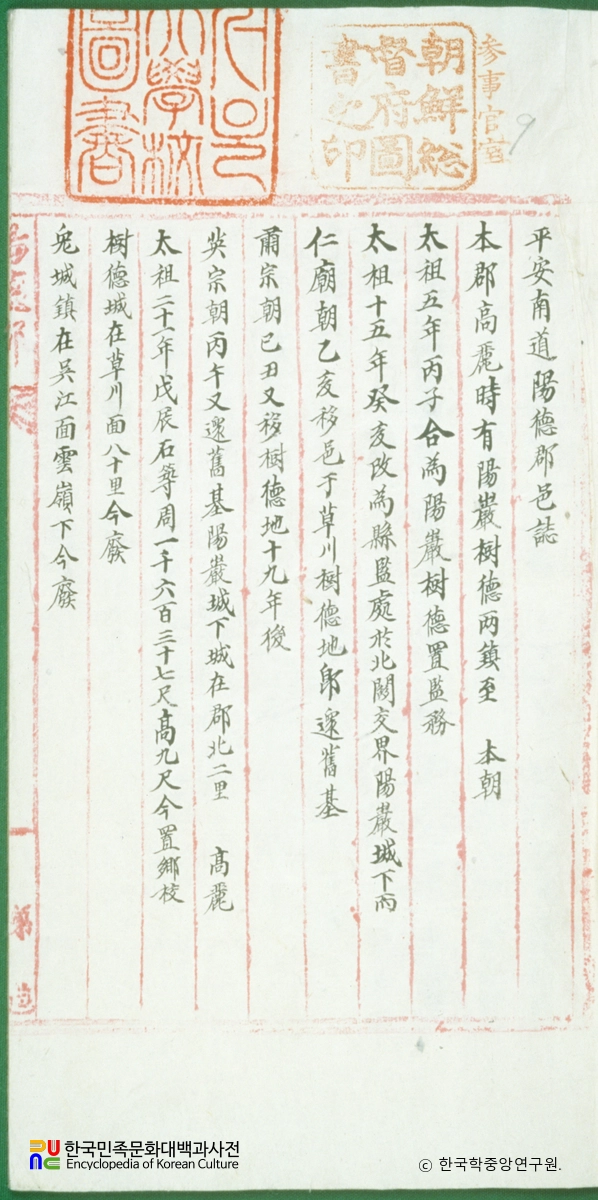 参事官室
9
朝鮮総
督府圖
書之印
大學校
圖書
平安南道陽德郡邑誌
本郡高麗時有陽巖樹德兩鎮至 本朝
太祖五年丙子合為陽巖樹德置監務
太祖十五年癸亥改為縣監處於北關交界陽巖城下而
仁廟朝乙亥移邑于草川樹德地卽還舊基
肅宗朝己丑又移樹德地十九年後
英宗朝丙午又還舊基陽巖城下城在郡北二里 高麗
太祖二十一年戊辰石築周一千六百三十七尺高九尺今置鄉校
樹德城在草川面八十里今廢
兎城鎮在吳江面雲嶺下今廢
한국민족문화대백과사전
Encyclopedia of Korean Culture
© 한국학중앙연구원.